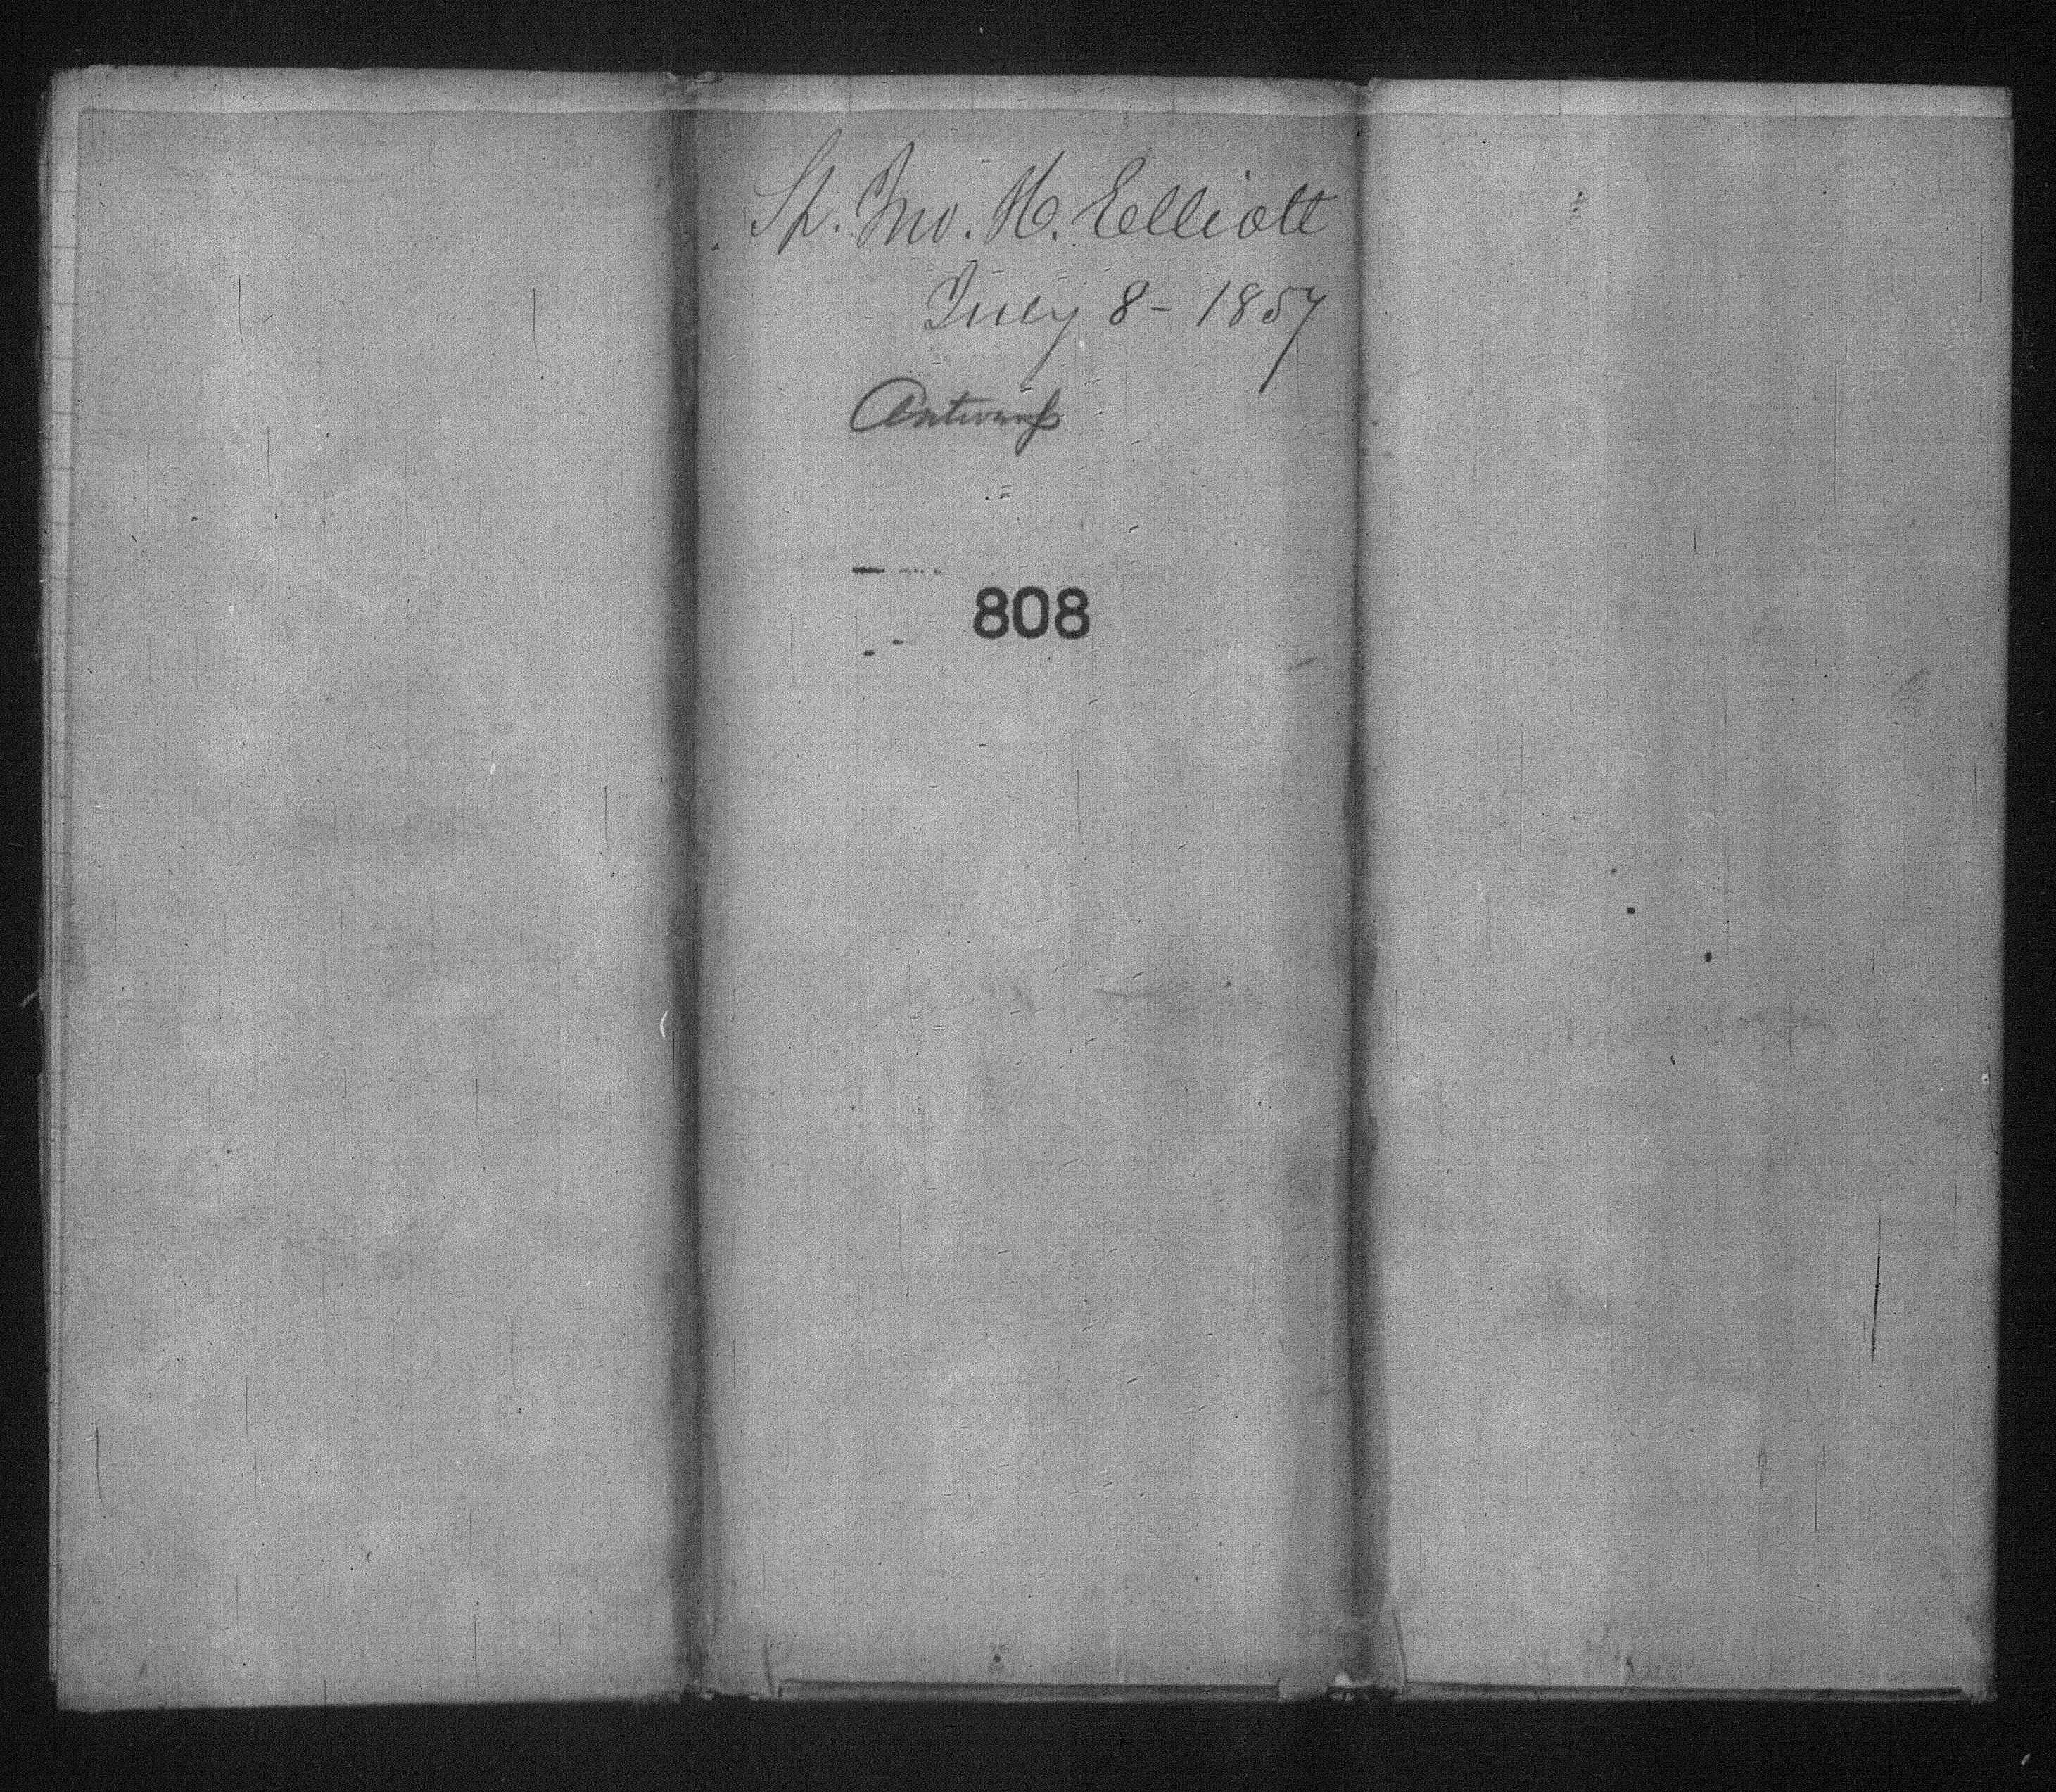 Sh. Jno. H. Elliott
July 8 - 1857
Antwerp
808